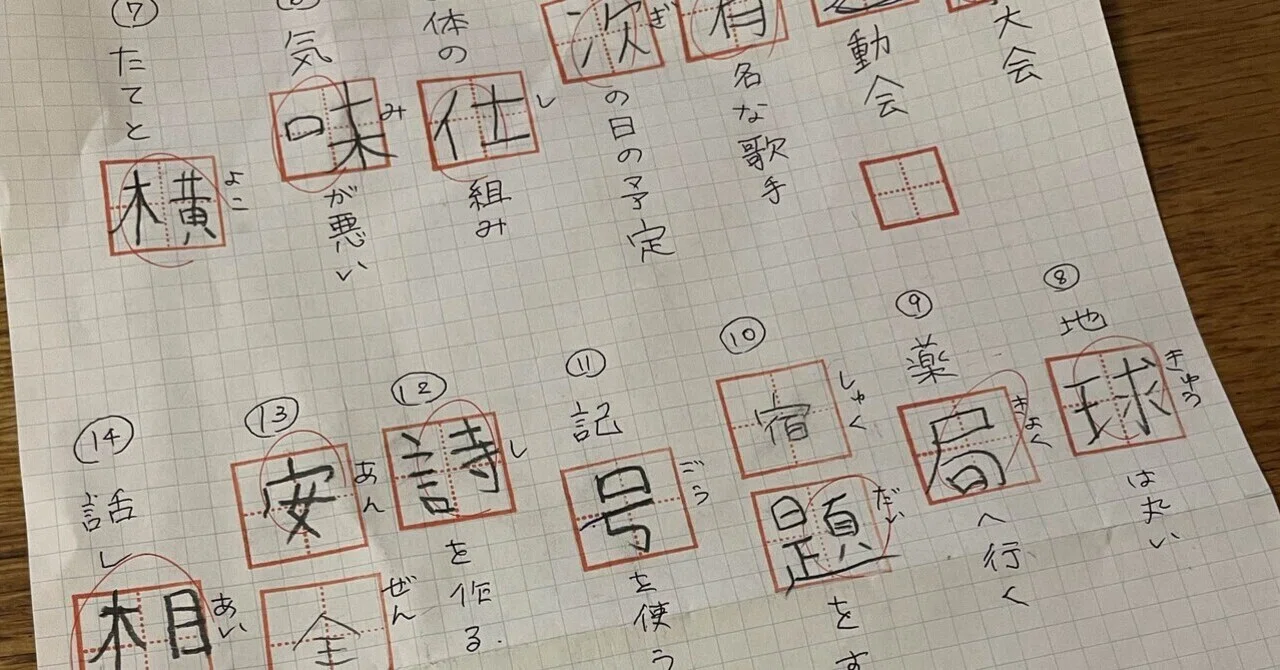 大会
動会
有名な歌手
次ぎの日の予定
体の仕し組み
気味みが悪い
⑦たてと横よこ
⑧地球きゅうは丸い
⑨薬局きょくへ行く
⑩宿しゅく題だいをす
⑪記号ごうを使う
⑫詩しを作る.
⑬安あん全ぜん
⑭話し相あい